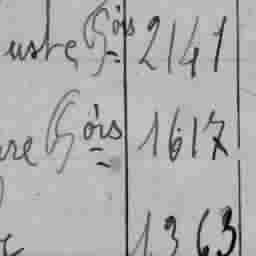 uste Gois 2141
re Gois 1617
1363